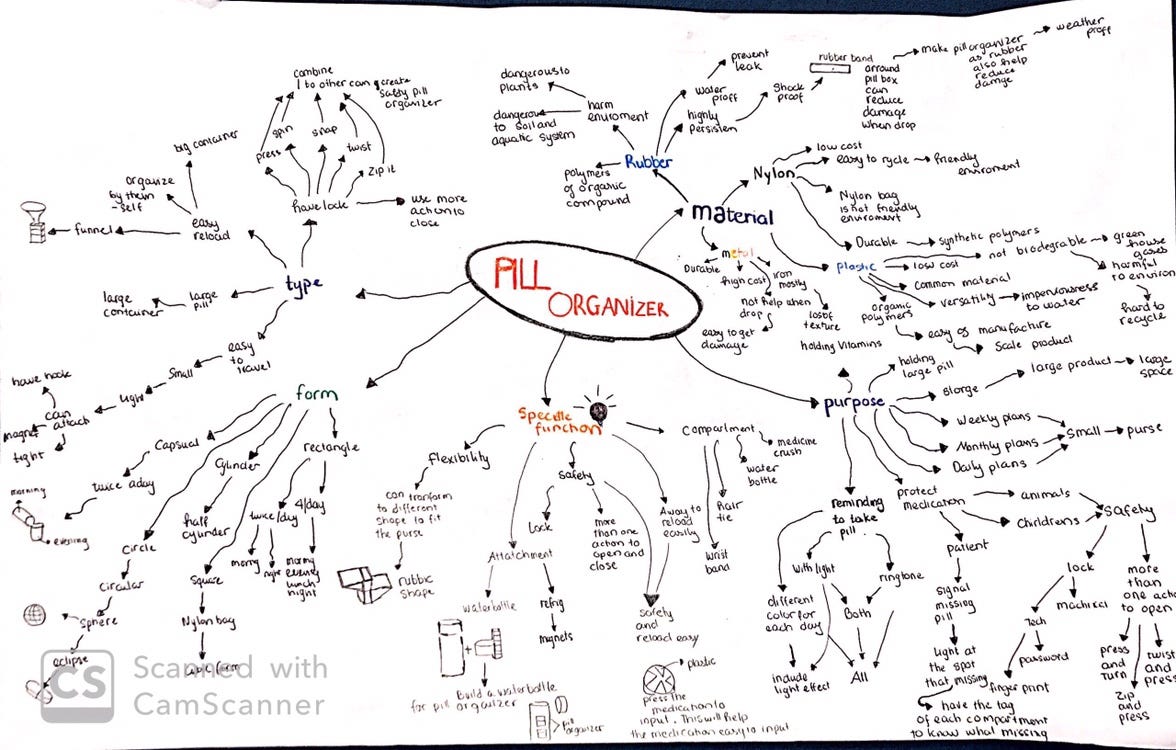 PILL
ORGANIZER
type
have lock
press
spin
snap
twist
zip it
combine
1 to other can create
safty pill
organizer
use more
action to
close
easy
reload
big container
organize
by them
-self
funnel
large
pill
large
container
easy
to
travel
Small
light
can
attach
have hook
magnet
tight
form
Capsual
twice a day
morning
evening
Cylinder
half
cylinder
circle
Circular
Sphere
eclipse
square
Nylon bag
rectangle
twice/day
morny
night
4/day
morny
evening
lunch
night
Specific
function
flexibility
can tranform
to different
shape to fit
the purse
rubbic
shape
Attatchment
waterbottle
+
Build a waterbottle
for pill organizer
pill
organizer
refrig
mignets
Safety
Lock
more
than one
action to
open and
close
Away to
reload
easily
safety
and
reload easy
plastic
press the
medication to
input. This will help
the medication easy to input
Compartment
medicine
crush
water
bottle
hair
tie
wrist
band
material
Rubber
harm
enviroment
dangerous to
plants
dangerous
to soil and
aquatic system
polymers
of organic
compound
water
proff
prevent
leak
highly
persisten
Shock
proof
rubber band
arround
pill box
can
reduce
damage
when drop
make pill organizer
as rubber
also help
reduce
damge
weather
proff
Nylon
low cost
easy to rycle
friendly
enviroment
Nylon bag
is not friendly
enviroment
Durable
synthetic polymers
metal
Durable
high cost
iron
mostly
not help when
drop
easy to get
damage
lost of
texture
plastic
not biodegrable
green
house
gases
harmful
to environ
hard to
recycle
low cost
common material
versatility
imperviousness
to water
organic
polymers
easy of manufacture
Scale product
purpose
holding vitamins
holding
large pill
storge
large product
large
space
Weekly plans
Monthly plans
Daily plans
Small
purse
reminding
to take
pill
different
color for
each day
include
light effect
with light
Both
ringtone
All
protect
medication
animals
Childrens
Safety
lock
Tech
finger print
password
machical
more
than
one actio
to open
press
and
turn
Zip
and
press
twist
and
press
patient
signal
missing
pill
light at
the spot
that missing
have the tag
of each compartment
to know what missing
CS
Scanned with
CamScanner